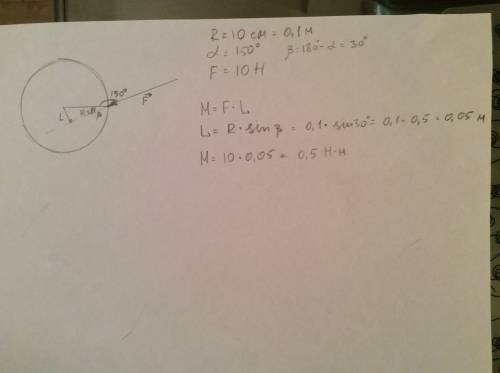 R = 10 см = 0,1 м
α = 150° β = 180° - α = 30°
F = 10 Н
150°
F
L
β
M = F · L
L = R · sin β = 0,1 · sin 30° = 0,1 · 0,5 = 0,05 м
M = 10 · 0,05 = 0,5 Н·м